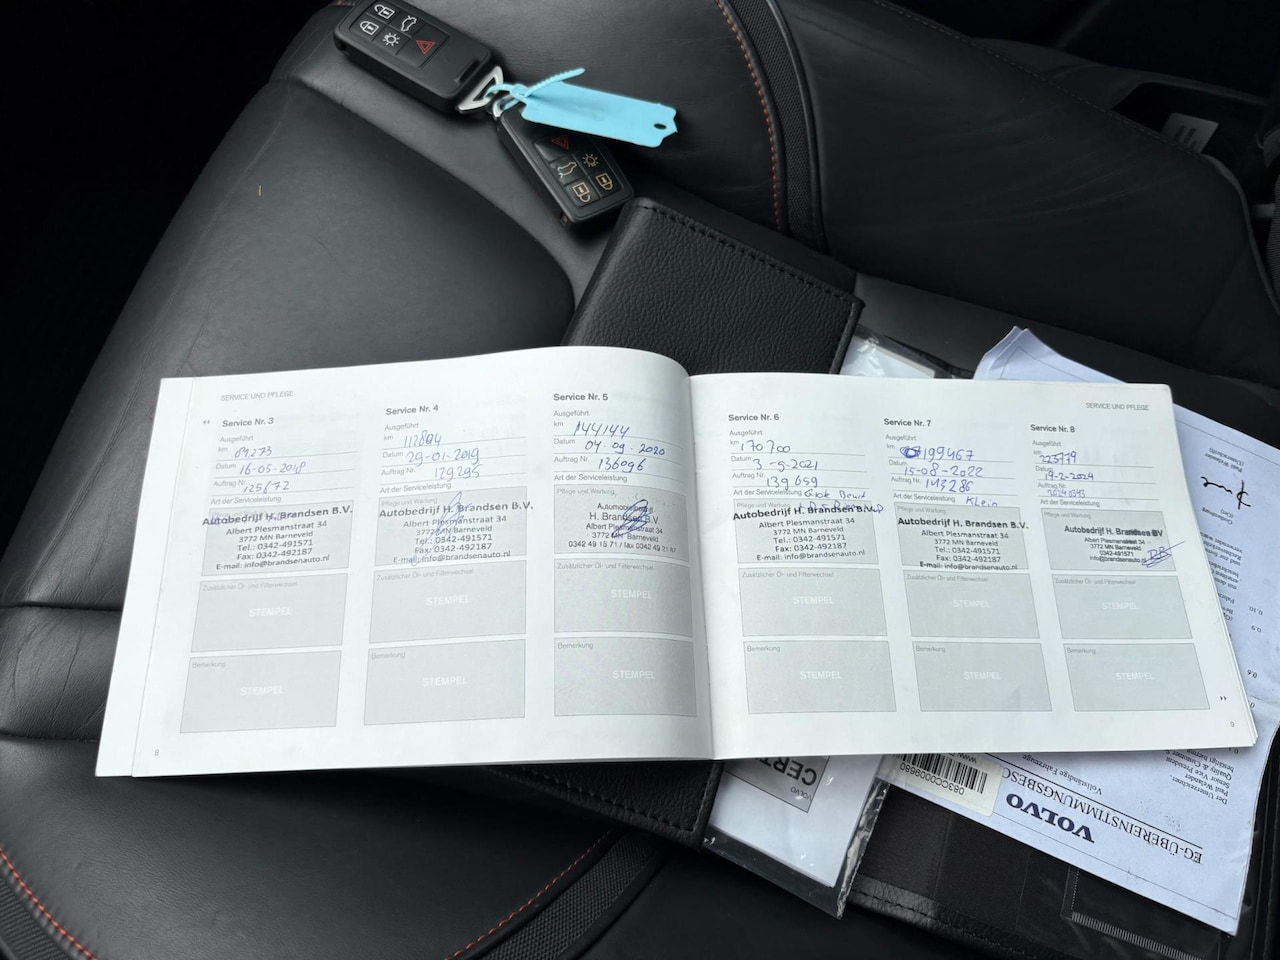 SERVICE UND PFLEGE
Service Nr. 3
Ausgeführt
km 89273
Datum 16-05-2018
Auftrag Nr. 125172
Art der Serviceleistung
Pflege und Wartung
Autobedrijf H. Brandsen B.V.
Albert Plesmanstraat 34
3772 MN Barneveld
Tel.: 0342-491571
Fax: 0342-492187
E-mail: info@brandsenauto.nl
Zusätzlicher Öl- und Filterwechsel
STEMPEL
Bemerkung
STEMPEL
8
Service Nr. 4
Ausgeführt
km 112894
Datum 29-01-2019
Auftrag Nr. 129295
Art der Serviceleistung
Pflege und Wartung
Autobedrijf H. Brandsen B.V.
Albert Plesmanstraat 34
3772 MN Barneveld
Tel.: 0342-491571
Fax: 0342-492187
E-mail: info@brandsenauto.nl
Zusätzlicher Öl- und Filterwechsel
STEMPEL
Bemerkung
STEMPEL
Service Nr. 5
Ausgeführt
km 144144
Datum 04-09-2020
Auftrag Nr. 136096
Art der Serviceleistung
Pflege und Wartung
H. Brandsen B.V.
Albert Plesmanstraat 34
3772 MN Barneveld
Zusätzlicher Öl- und Filterwechsel
STEMPEL
Bemerkung
STEMPEL
Service Nr. 6
Ausgeführt
km 170700
Datum 3-9-2021
Auftrag Nr. 139659
Art der Serviceleistung
Pflege und Wartung
Autobedrijf H. Brandsen B.V.
Albert Plesmanstraat 34
3772 MN Barneveld
Tel.: 0342-491571
Fax: 0342-492187
E-mail: info@brandsenauto.nl
Zusätzlicher Öl- und Filterwechsel
STEMPEL
Bemerkung
STEMPEL
Service Nr. 7
Ausgeführt
km 199467
Datum 15-08-2022
Auftrag Nr. 143286
Art der Serviceleistung Klein
Pflege und Wartung
Autobedrijf H. Brandsen B.V.
Albert Plesmanstraat 34
3772 MN Barneveld
Tel.: 0342-491571
Fax: 0342-492187
E-mail: info@brandsenauto.nl
Zusätzlicher Öl- und Filterwechsel
STEMPEL
Bemerkung
STEMPEL
SERVICE UND PFLEGE
Service Nr. 8
Ausgeführt
km
Datum 19-2-2024
Auftrag Nr.
Art der Serviceleistung
Pflege und Wartung
Autobedrijf H. Brandsen BV
Albert Plesmanstraat 34
3772 MN Barneveld
0342-491571
info@brandsenauto.nl
Zusätzlicher Öl- und Filterwechsel
STEMPEL
Bemerkung
STEMPEL
9
VOLVO
CERT
083CC0009680
VOLVO
Vollständige Fahrzeuge
Der Unterzeichner,
Paul Welander
Senior Vice President
Quality & Customer
Paul Welander
(Unterschrift)
(Ort)